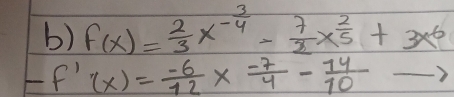 b) f(x) = 2/3 x^(-3/4) - 7/2 x^(2/5) + 3x^6
- f'(x) = -6/12 x^(-7/4) - 14/10 →